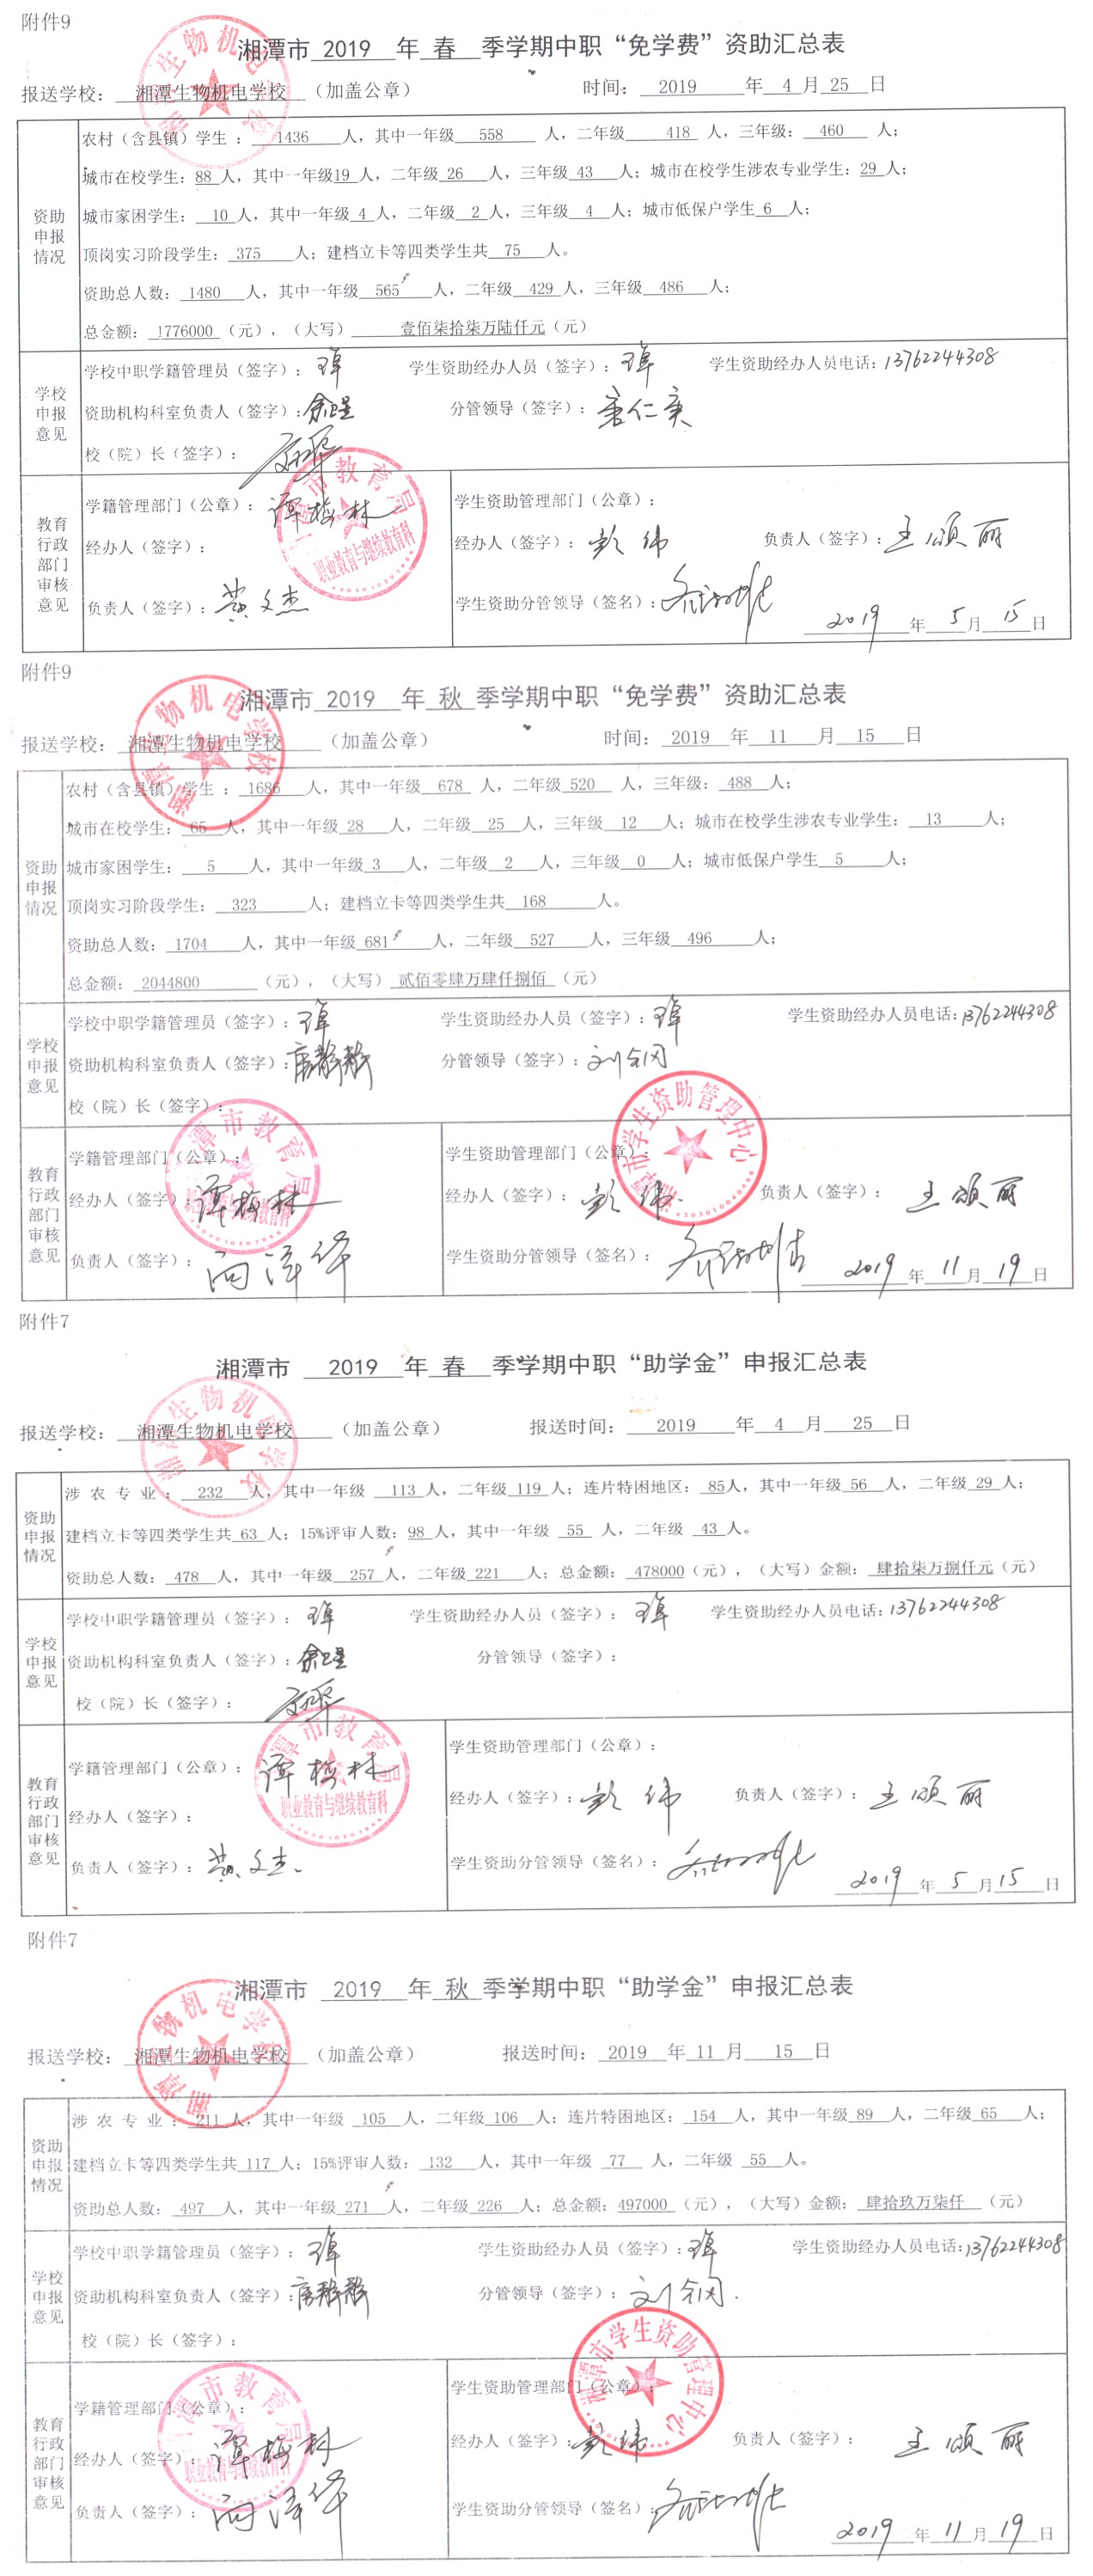 附件9
湘潭市 2019 年 春 季学期中职“免学费”资助汇总表
报送学校: 湘潭生物机电学校 (加盖公章) 时间: 2019 年 4 月 25 日
资助申报情况
农村(含县镇)学生: 1436 人,其中一年级 558 人,二年级 418 人,三年级: 460 人;
城市在校学生: 88 人,其中一年级19 人,二年级 26 人,三年级 43 人;城市在校学生涉农专业学生: 29 人;
城市家困学生: 10 人,其中一年级 4 人,二年级 2 人,三年级 4 人;城市低保户学生 6 人;
顶岗实习阶段学生: 375 人;建档立卡等四类学生共 75 人。
资助总人数: 1480 人,其中一年级 565 人,二年级 429 人,三年级 486 人;
总金额: 1776000 (元),(大写) 壹佰柒拾柒万陆仟元(元)
学校申报意见
学校中职学籍管理员(签字): 学生资助经办人员(签字): 学生资助经办人员电话:13762244308
资助机构科室负责人(签字): 分管领导(签字):
校(院)长(签字):
教育行政部门审核意见
学籍管理部门(公章): 谭梅林 学生资助管理部门(公章):
经办人(签字): 经办人(签字): 彭伟 负责人(签字): 王颂丽
负责人(签字): 黄文杰 学生资助分管领导(签名):
2019 年 5 月 15 日
湘潭市教育局
职业教育与继续教育科
附件9
湘潭市 2019 年 秋 季学期中职“免学费”资助汇总表
报送学校: 湘潭生物机电学校 (加盖公章) 时间: 2019 年 11 月 15 日
资助申报情况
农村(含县镇)学生: 1686 人,其中一年级 678 人,二年级 520 人,三年级: 488 人;
城市在校学生: 65 人,其中一年级 28 人,二年级 25 人,三年级 12 人;城市在校学生涉农专业学生: 13 人;
城市家困学生: 5 人,其中一年级 3 人,二年级 2 人,三年级 0 人;城市低保户学生 5 人;
顶岗实习阶段学生: 323 人;建档立卡等四类学生共 168 人。
资助总人数: 1704 人,其中一年级 681 人,二年级 527 人,三年级 496 人;
总金额: 2044800 (元),(大写) 贰佰零肆万肆仟捌佰 (元)
学校申报意见
学校中职学籍管理员(签字): 学生资助经办人员(签字): 学生资助经办人员电话:13762244308
资助机构科室负责人(签字): 分管领导(签字):
校(院)长(签字):
教育行政部门审核意见
学籍管理部门(公章): 学生资助管理部门(公章):
经办人(签字): 谭梅林 经办人(签字): 彭伟 负责人(签字): 王颂丽
负责人(签字): 学生资助分管领导(签名):
2019 年 11 月 19 日
湘潭市学生资助管理中心
附件7
湘潭市 2019 年 春 季学期中职“助学金”申报汇总表
报送学校: 湘潭生物机电学校 (加盖公章) 报送时间: 2019 年 4 月 25 日
资助申报情况
涉农专业: 232 人,其中一年级 113 人,二年级 119 人;连片特困地区: 85人,其中一年级 56 人,二年级 29 人;
建档立卡等四类学生共 63 人;15%评审人数: 98 人,其中一年级 55 人,二年级 43 人。
资助总人数: 478 人,其中一年级 257 人,二年级 221 人;总金额: 478000(元),(大写)金额: 肆拾柒万捌仟元(元)
学校申报意见
学校中职学籍管理员(签字): 学生资助经办人员(签字): 学生资助经办人员电话:13762244308
资助机构科室负责人(签字): 分管领导(签字):
校(院)长(签字):
教育行政部门审核意见
学籍管理部门(公章): 谭梅林 学生资助管理部门(公章):
经办人(签字): 经办人(签字): 彭伟 负责人(签字): 王颂丽
负责人(签字): 黄文杰 学生资助分管领导(签名):
2019 年 5 月 15 日
湘潭市教育局
职业教育与继续教育科
附件7
湘潭市 2019 年 秋 季学期中职“助学金”申报汇总表
报送学校: 湘潭生物机电学校 (加盖公章) 报送时间: 2019 年 11 月 15 日
资助申报情况
涉农专业: 211 人,其中一年级 105 人,二年级 106 人;连片特困地区: 154 人,其中一年级 89 人,二年级 65 人;
建档立卡等四类学生共 117 人;15%评审人数: 132 人,其中一年级 77 人,二年级 55 人。
资助总人数: 497 人,其中一年级 271 人,二年级 226 人;总金额: 497000 (元),(大写)金额: 肆拾玖万柒仟 (元)
学校申报意见
学校中职学籍管理员(签字): 学生资助经办人员(签字): 学生资助经办人员电话:13762244308
资助机构科室负责人(签字): 分管领导(签字):
校(院)长(签字):
教育行政部门审核意见
学籍管理部门(公章): 学生资助管理部门(公章):
经办人(签字): 谭梅林 经办人(签字): 彭伟 负责人(签字): 王颂丽
负责人(签字): 学生资助分管领导(签名):
2019 年 11 月 19 日
湘潭市教育局
职业教育与继续教育科
湘潭市学生资助管理中心